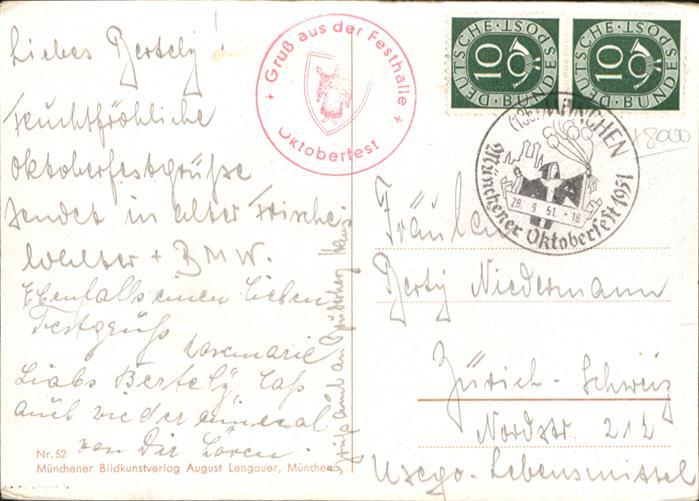 Liebes Bertely!
Feuchtfröhliche
Oktoberfestgrüße
sendet in alter Frische
Walter + BMW.
Ebenfalls einen lieben
Festgruß
Rosmarie
Liabs Bertely, lass
auch wieder einmal
von Dir hören.
an
Nr. 52
Münchener Bildkunstverlag August Lengauer, München
+ Gruß aus der Festhalle +
Oktoberfest
DEUTSCHE · BUNDESPOST
10
DEUTSCHE · BUNDESPOST
10
MÜNCHEN
28. 9. 51. - 18
Münchener Oktoberfest 1951
18000
Fräulein
Berty Niedermann
Zürich - Schweiz
Nordstr. 212
Usego-Lebensmittel